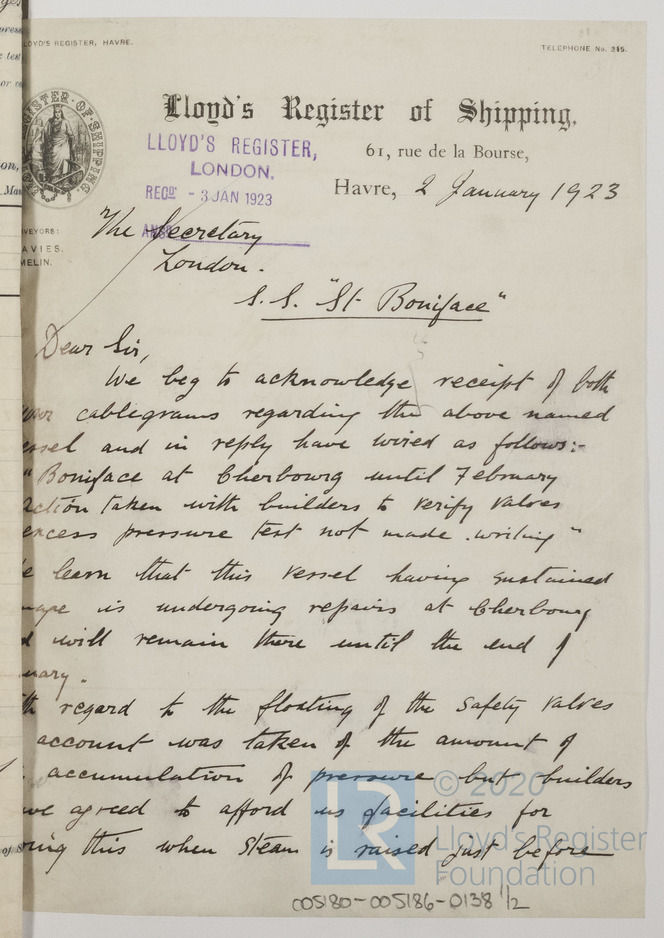 LOYD'S REGISTER, HAVRE.
TELEPHONE No. 315.
Lloyd's Register of Shipping,
61, rue de la Bourse,
LLOYD'S REGISTER,
LONDON.
RECD - 3 JAN 1923
Havre, 2 January 1923
The Secretary
London.
VEYORS:
AVIES.
MELIN.
S.S. "St Boniface"
Dear Sir,
We beg to acknowledge receipt of both
your cablegrams regarding the above named
essel and in reply have wired as follows:-
"Boniface at Cherbourg until February
action taken with builders to verify valves
excess pressure test not made. writing"
e learn that this vessel having sustained
mage is undergoing repairs at Cherbourg
d will remain there until the end of
nuary.
th regard to the floating of the safety valves
account was taken of the amount of
accumulation of pressure but builders
ve agreed to afford us facilities for
ring this when steam is raised just before
© 2020
Lloyd's Register
Foundation
LR
005180-005186-0138 1/2